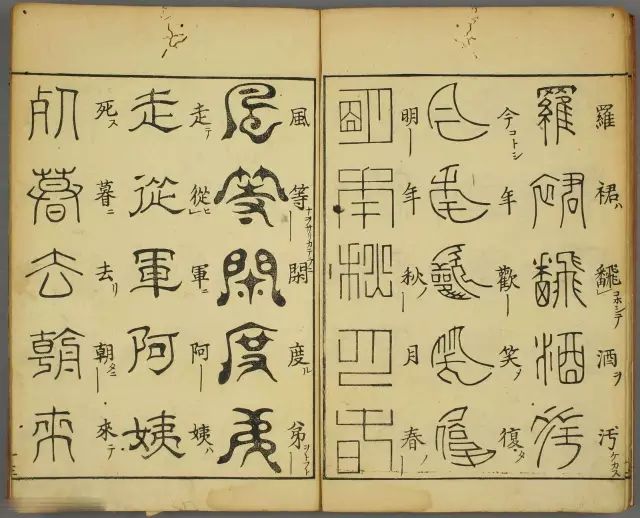 羅裙ハ飜コホシテ酒ヲ汚ケカス
羅裙飜酒汚
今コトシ年歡ー笑ノ復タ
今年歡笑復
明ー年秋ノ月春ノ
明年秋月春
風等ー閑度ル弟
風等閑度弟
走テ從ヒ軍ニ阿ー姨ハ
走從軍阿姨
死ス暮ニ去リ朝タニ來テ
死暮去朝來